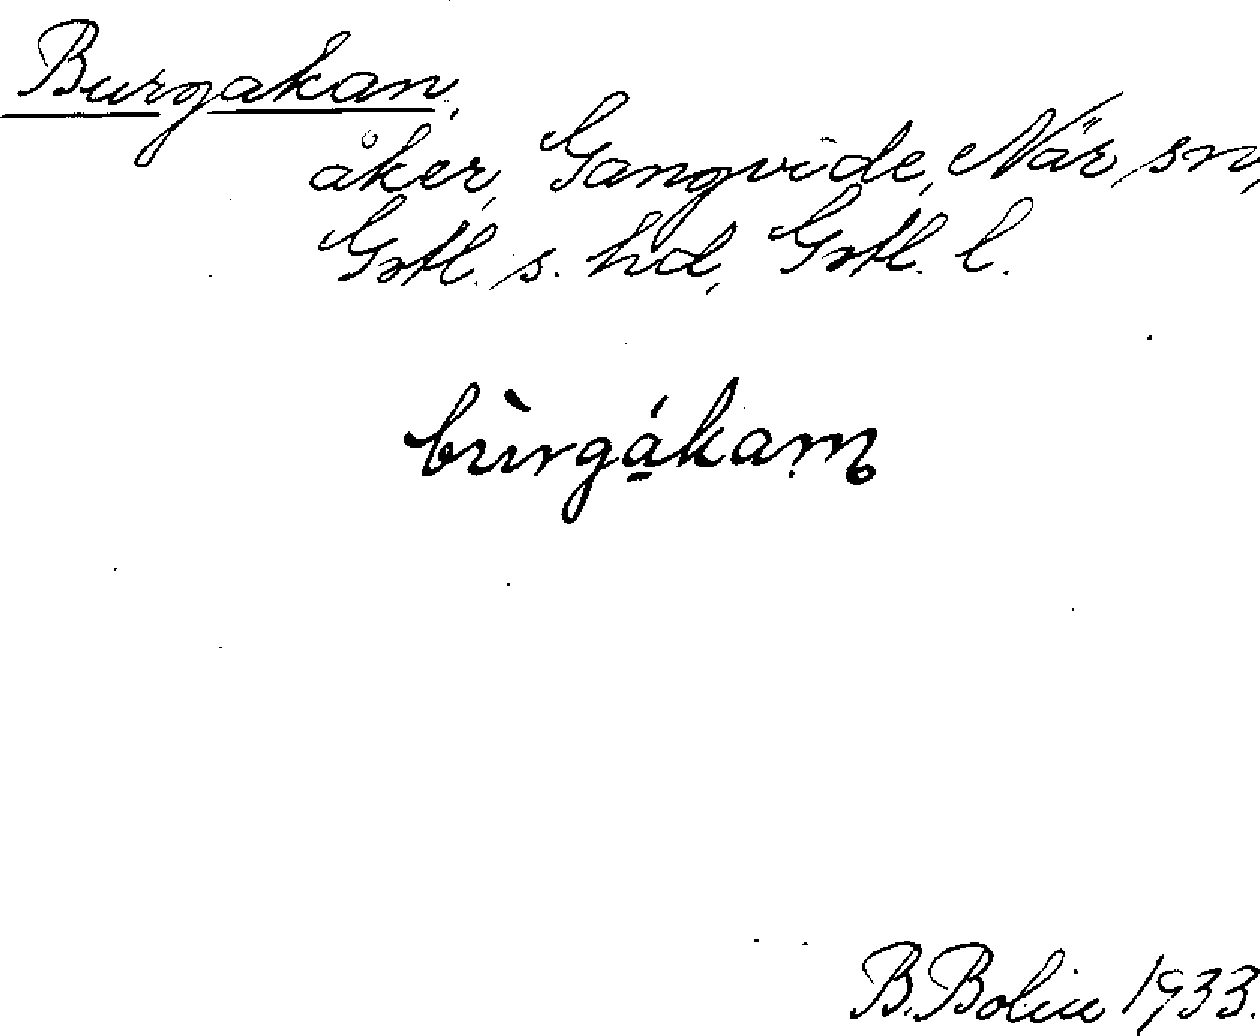 Burgakan,
åker, Gangvide, När, sn,
Gotl. s. hd, Gotl. l.
bùrgákam
B. Bolin 1933.